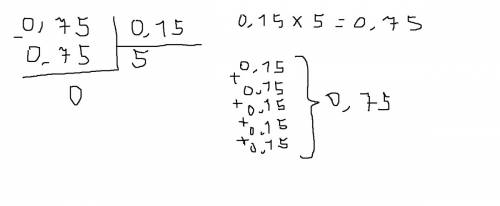 -0,75 0,15
0.75 5
0
0,15 × 5 = 0,75
0,15
+0,15
+0,15
+0,15
+0,15
0,75